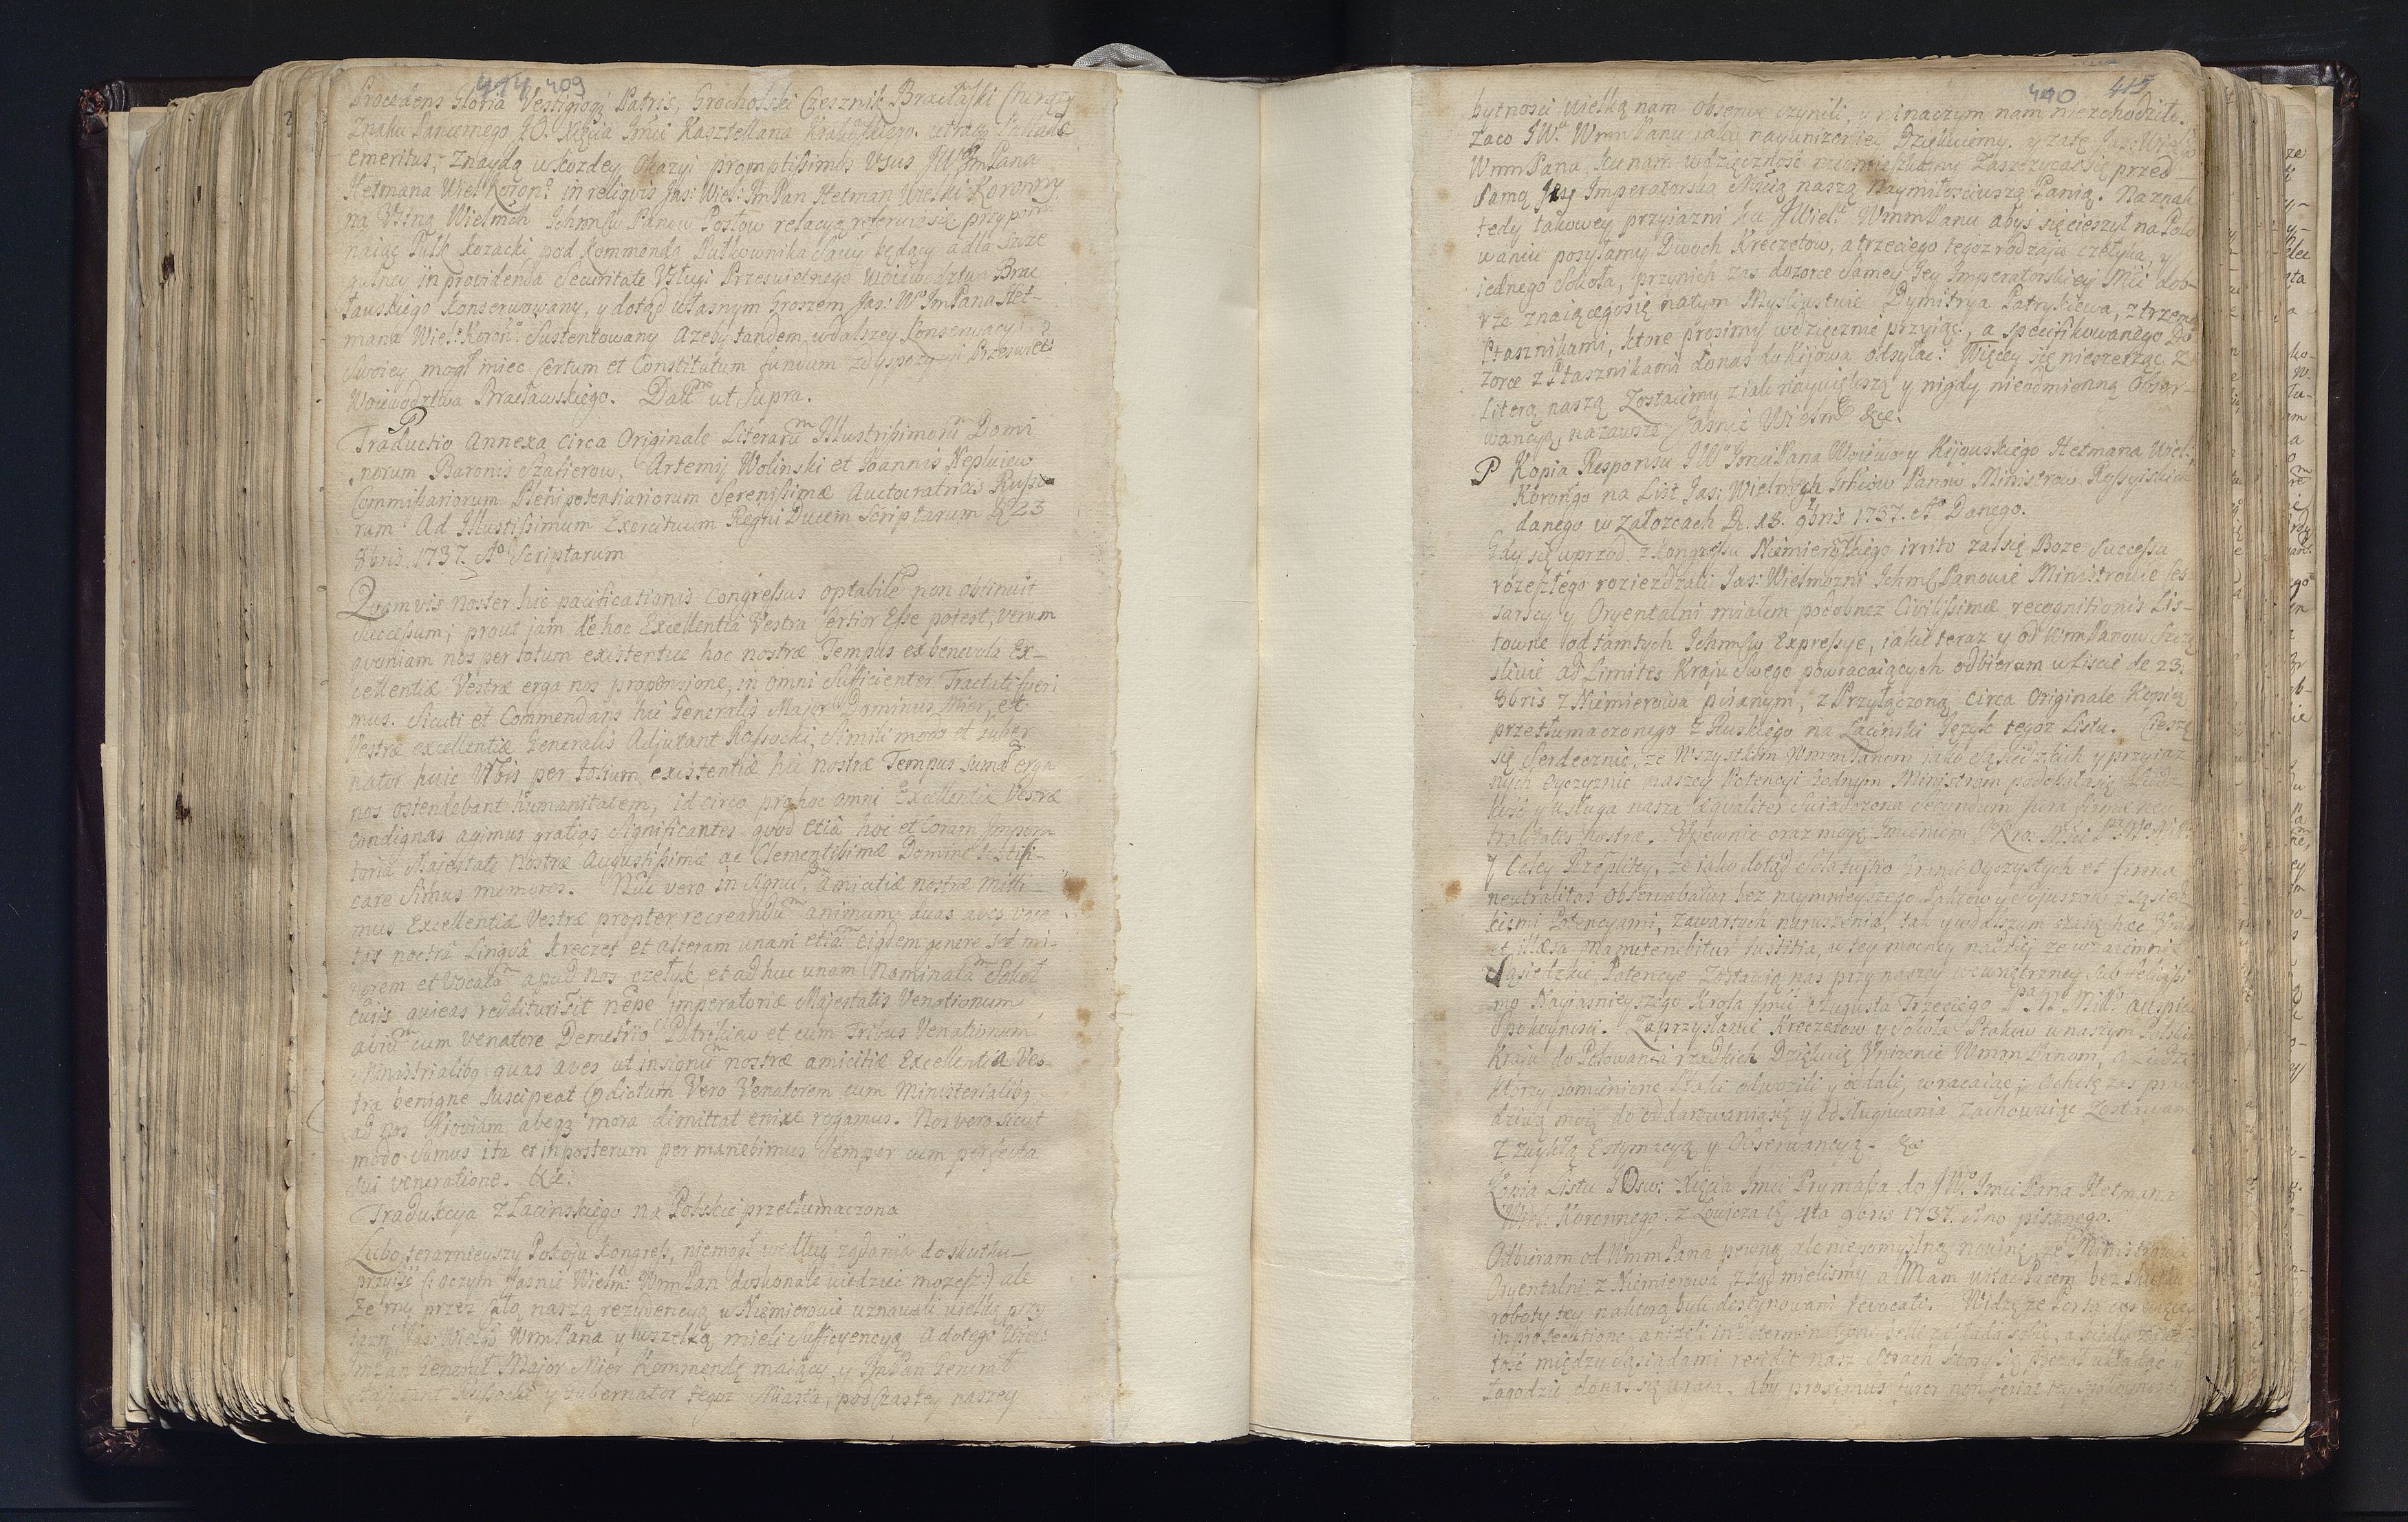 414 409
Procedens Gloria Vestigiog Patris, Grocholski Czesznik Bracłaski Chorąży
Znaku Pancernego JO. Xięcia Imci Kasztellana Krakowskiego.
emeritus, znaydą w kozdey okazyi promptissimos Usus JW ImPana
Hetmana Wiel Koron: in reliquis Jas: Wiel: ImPan Hetman Wielki Koronny
na Ustną Wielmch Ichmciw Panow Posłow relacyą referuie się przypomi
naiąc Pułk kozacki pod Kommendą Pułkownika Sawy będący a dla
gulney in providenda Securitate Usługi Przeswietnego Woiewodztwa Brac
ławskiego konserwowany, y dotąd własnym Groszem Jas: Wo ImPana Het-
mana Wiel: Koron: Sustentowany Azeby tandem w dalszey Conserwacyi
Swoiey mogł miec Certum et Constitutum fundum z dyspozycyi Przeswiet:
Woiewodztwa Bracławskiego. Datt ut Supra.
Traductio Annexa circa Originale Literarum Illustrissimorum Domi
norum Baronis Szafierow, Artemij Wolinski et Joannis Nepluiew
Commissariorum Plenipotentiariorum Serenissimæ Auctocratricis Russia
rum Ad Illustissimum Exercituum Regni Ducem Scriptarum D 23
8bris 1737. Ao Scriptarum
Quamvis noster hic pacificationis Congressus optabile non obtinuit
Successum; prout jam de hoc Excellentia Vestra Certior Esse potest, verum
quoniam nos per totum existentiæ hoc nostræ Tempus ex benevola Ex-
cellentiæ Vestræ erga nos propensione, in omni Sufficienter Tractati fueri
mus. Sicuti et Commendans hic Generalis Major Dominus Mier, et
Vestræ excellentiæ Generalis Adjutant Rossocki, Simili modo et guber
nator huic Urbis per totum existentiæ hic nostræ Tempus sumã erga
nos ostendebant humanitatem, id circo pro hoc omni Excellentiæ Vestræ
condignas agimus gratias Significantes quod etiã hoc et Coram Impera
toria Majestate Nostræ Augustissimæ ac Clementissimæ Dominæ testifi-
care Simus memores. Nũc vero in Signũ amicitiæ nostræ mitti
mus Excellentiæ Vestræ propter recreandum animum duas aves voca
tas nostrâ Linguâ Kreczet et alteram unam etiam eiqdem genere sed mi-
norem et Vocatam apud nos czełyk et adhuc unam Nominatam Sokoł
cujs quieas reddituri Sit nẽpe imperatoriæ Majestatis Venationum
avium cum venatore Demetrio Patrikiew et cum Tribus Venationum
Ministrialibg quas aves ut in signum nostræ amicitiæ Excellentia Ves-
tra benigne Suscipeat Pdictum Vero Venatorem cum Ministerialibg
ad nos Kioviam absqz mora dimittat enixe rogamus. Nos vero sicut
modo Sumus ita et in posterum permanebimus Semper cum perfecta
Sui veneratione. &c:
Tradukcya z Łacinskiego na Polskie przetłumaczona
Lubo teraznieyszy Pokoju kongress, niemogł według żądania do skutku
przyisć (: o czym Jasnie Wielm: WmPan doskonale wiedzieć mozesz:) ale
że my przez całą naszą rezydencyą w Niemierowie uznawali wielką przy
iazn Jas: Wielgo WmPana y wszelką mieli Sufficyencyą. A do tego Wiel:
ImPan Generał Major Mier Kommendę maiący y ImPan Generał
Adjutant Rossocki y Gubernator tegoz Miasta, pod czas tey naszey
410 415
bytnosci wielką nam obserwę czynili, y ninaczym nam niezchodziło.
Zaco JWo WmmPanu iako nayunizeniey Dziękuiemy. y zatę Jas: Wielgo
WmmPana ku nam wdzięcznosć nieomieszkamy Zaszczycać się przed
Samą Jey Imperatorską Mscią naszą Naymiłosciwszą Panią. Na znak
tedy takowey przyiazni ku JWiel: WmmPanu abyś się cieszył na Polo
waniu posyłamy Dwoch Kreczetow, a trzeciego tegoz rodzaju czełyka, y
iednego Sokoła, przynich zas dozorce Samey Jey Imperatorskiey Mci dob-
rze znaiącegosię na tym Myslistwie Dymitrya Patrykiewa, z trzema
Ptasznikami, ktore prosimy wdzięcznie przyiąc, a specifikowanego Do
zorce z Ptasznikami do nas do Kijowa odsyłac: Więcey się nieszerząc z
Literą naszą Zostaiemy z iak naywiększą y nigdy nieodmienną Obser-
wancyą nazawsze Jasnie Wielmo &ce.
P Kopia Responsu JWo Imci Pana Woiewo y Kijowskiego Hetmana Wiel:
Korongo na List Jas: Wielmch Ichmciow Panow Ministrow Rossyiskich
danego w Załozcach D. 13. 9bris 1737. Ao Danego.
Gdy się uprzod z kongressu Niemierowskiego irrito zal się Boze Successu
rozeszłego roziezdzali Jas: Wielmozni Ichmc Panowie Ministrowie Ces
sarscy y Oryentalni miałem podobnez Civilissimæ recognitionis Lis-
towne od tamtych Ichmciw Expressye, iakie teraz y od WmPanow Szczę
sliwie ad Limites Kraju Swego powracaiących odbieram w Liscie de 23.
8bris z Niemierowa pisanym, z Przyłączoną circa Originale Kopią
przetłumaczonego z Ruskiego na Łacinski Język tegoz Listu. Cieszę
się Serdecznie, ze Wszystkim WmmPanom iako Sąsiedzkich y przyiaz
nych Oyczyznie naszey Potencyi żednym Ministrom podobała się Ludz
kość y usługa nasza æqualiter Swiadczona Secundum Jura firmæ neu
tralitatis nostræ.
y Całey Rzeplitey, ze iako dotąd Sola tuitio Granic Oyczystych et firma
neutralitas observabatur bez naymnieyszego Paktow y Sojuszow z Sąsiedz
kiemi Potencyami, zawartych naruszenia, tak y w dalszym czasie hæc
et illæsa manutenebitur Justitia, w tey mocney nadziei ze wzaiemnie
Sąsiedzkie Potencye Zostawią nas przy naszey wewnętrzney Sub felicissi
mo Nayiasnieyszego Krola Imci Augusta Trzeciego Pa No Millo auspicio
Spokoynosci. Zaprzysłanie Kreczetow y Sokoła Ptakow w naszym Polskim
kraju do Polowania rzadkich Dziękuię Unizenie WmmPanom, a Ludzi
ktorzy pomienione Ptaki odwozili y oddali, wracaiąc; Ochotę zas praw
dziwą moię do oddarowaniasię y odsługiwania zachowuiąc Zostawam
z zwykłą Estymacyą y Obserwancyą. &c
Kopia Listu JOsw: Xięcia Imci Prymassa do JWo Imci Pana Hetmana
Wiel: Koronnego: z Łowicza D 4ta 9bris 1737. Ano pisanego.
Odbieram od WmmPana pewną ale niepomyslną nowinę, ze Ministrowie
Oryentalni z Niemierowa, zkąd mielismy Almam witac Pacem bez skutku
roboty tey na ktorą byli destynowani revocati. Widzę ze Porta
in prosecutione anizeli in determinatione belli zakłada sobie, a kiedy
tość między Sąsiadami recidit nasz Strach ktory się począł układać y
Łagodzic do nas się wraca, aby proximus furor non feriat tey spokoynosci